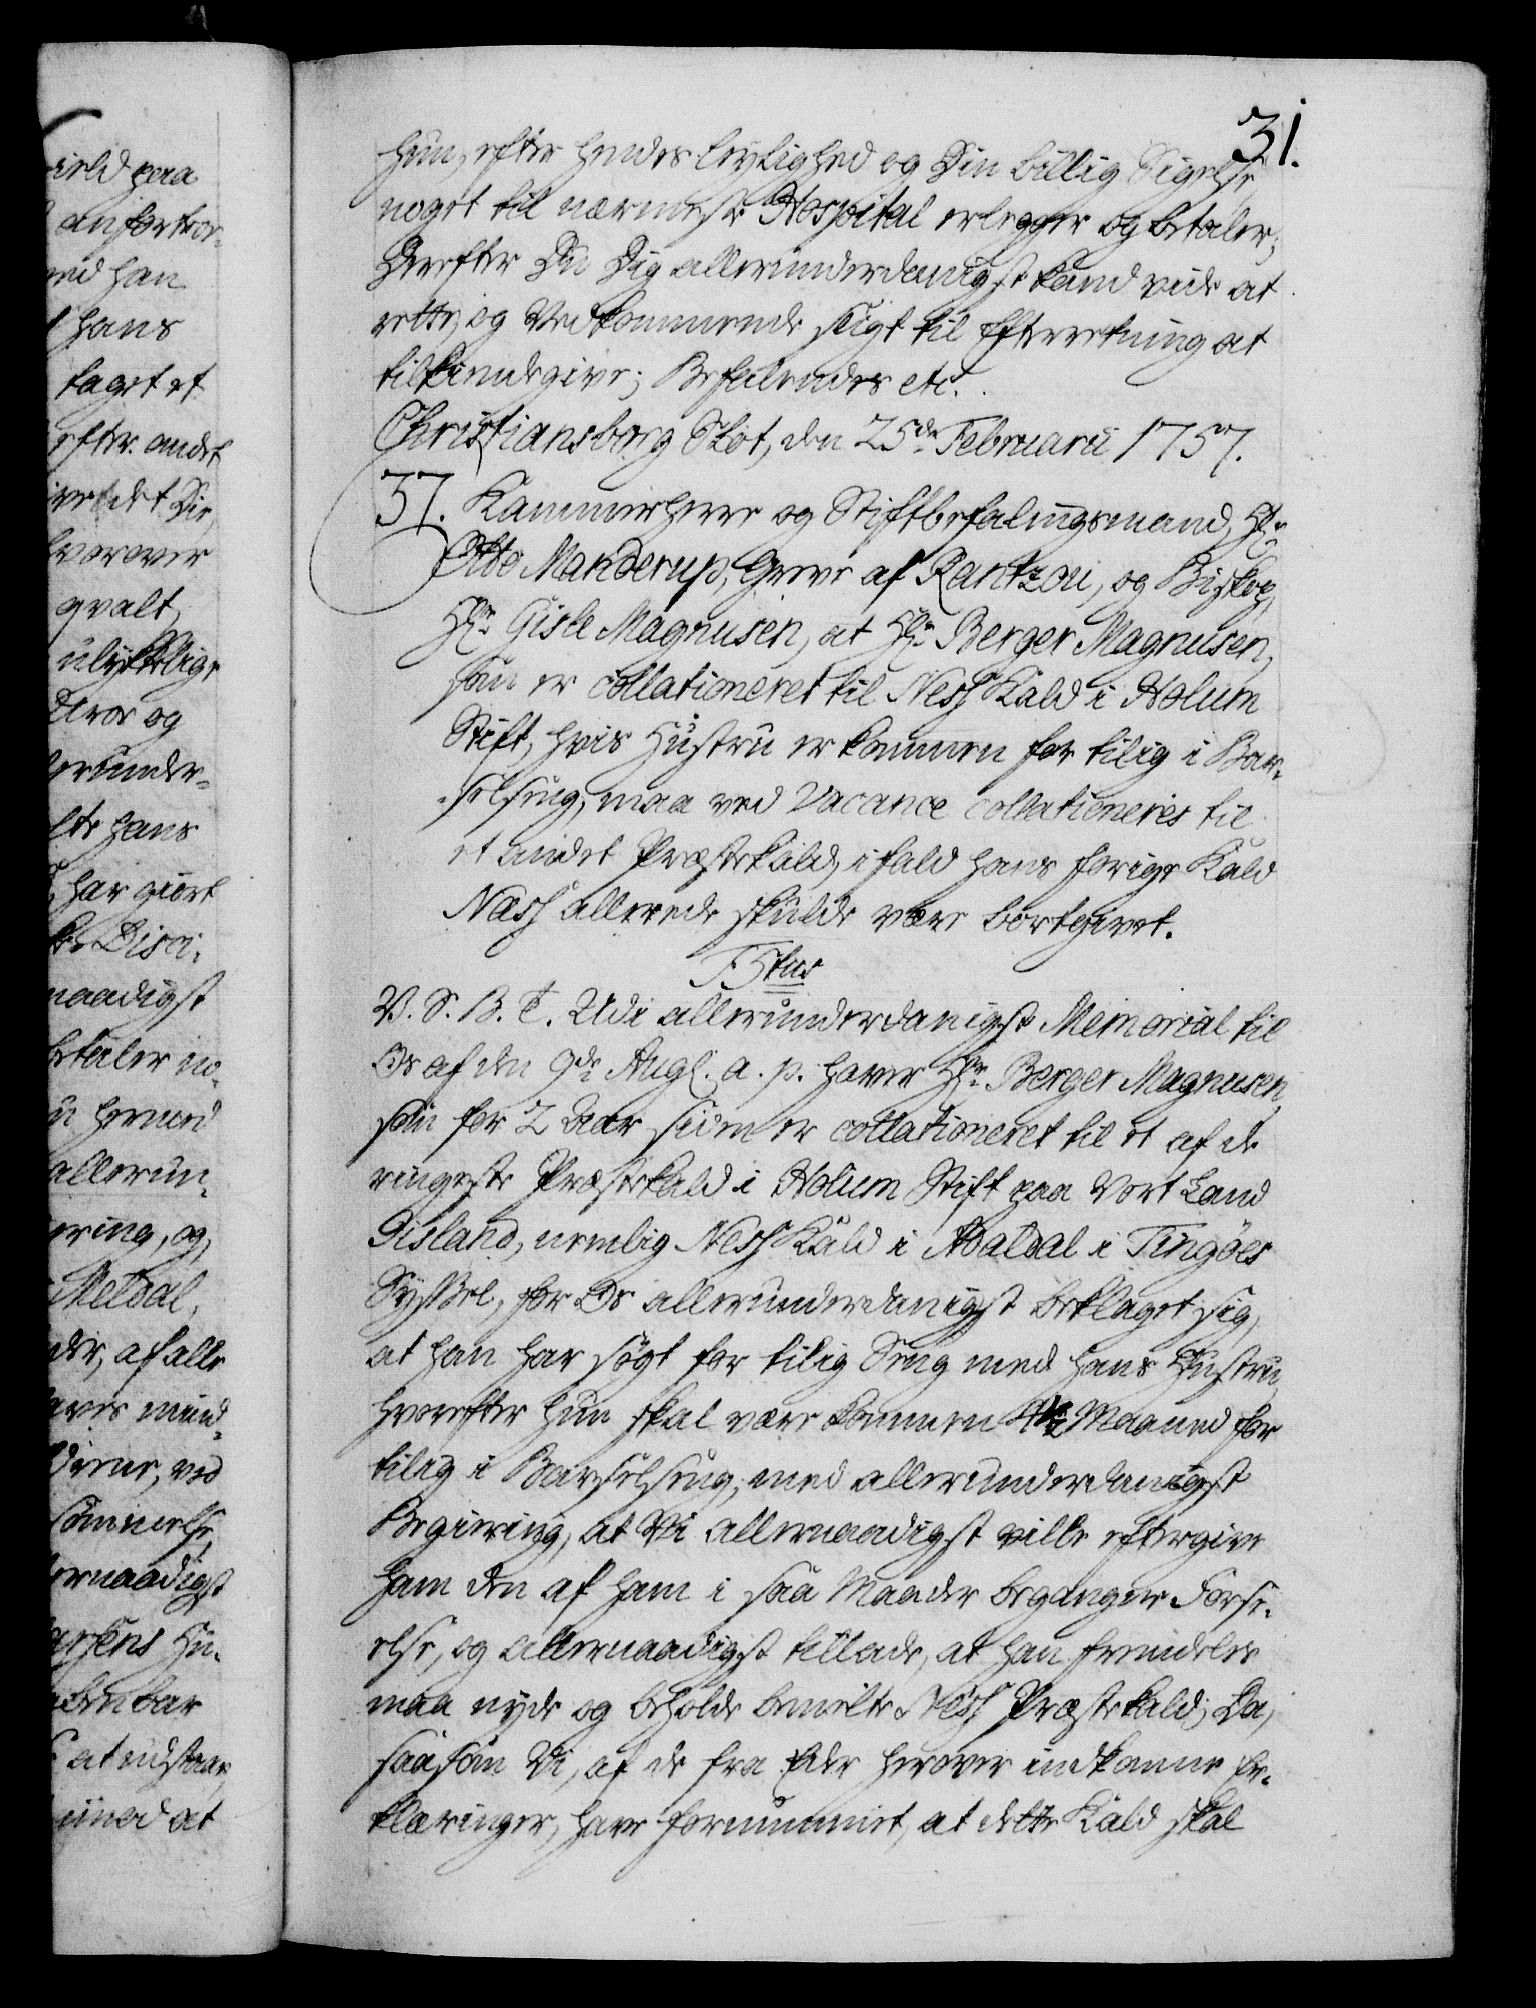 31.
hun, efter hendes leylighed og Din billig Sigelse,
noget til nærmeste Hospital erlegger og betaler;
Derefter Du Dig allerunderdanigst kand viide at
rette, og Vedkommende sligt til Efterretning at
tilkiendegive; Befalendes etc.
Christiansborg Slot, den 25de Februarii 1757.
37. Kammerherre og Stiftbefalingsmand, Hr.
Otto Manderup, Greve af Rantzou, og Biskop,
Hr. Gisle Magnusen, at Hr. Berger Magnusen,
som er collationeret til Ness Kald i Holum
Stift, hvis Hustru er kommen for tilig i Bar-
selseng, maa ved Vacance collationeres til
et andet Præstekald, ifald hans forige Kald
Næss allerede skulde være bortgivet.
F 5tus
V. S. B. T. Udi allerunderdanigst Memorial til
Os af den 9de Augs. a. p. haver Hr. Berger Magnusen,
som for 2 Aar siden er collationeret til et af de
ringeste Præstekald i Holum Stift paa Vort Land
Iisland, nemlig Ness Kald i Adaldal i Tingöes
Syssel, for Os allerunderdanigst beklaget sig,
at han har søgt for tilig Seng med hans Hustru,
hvorefter hun skal være kommen Maaned for
tilig i Barselseng, med allerunderdanigst
Begiering, at Vi allernaadigst ville eftergive
ham den af ham i saa Maader begangne Forse-
else, og allernaadigst tillade, at han fremdeles
maa nyde og beholde bemelte Ness Præstekald; Da,
saasom Vi, af de fra Eder herover indkomne Er-
klæringer, have fornummet, at dette Kald skal
ield paa
anfortroe-
ed han
hans
taget et
efter andet
det Die,
hvorover
qvalt,
ulykkelige
Aar og
erunder-
hans
har giort
Disci-
naadigst
betaler no-
hermed
allerun-
ering, og,
Meldal,
der, af alle
mind-
ved
ernaadigst
Hu-
at udstaae,
at